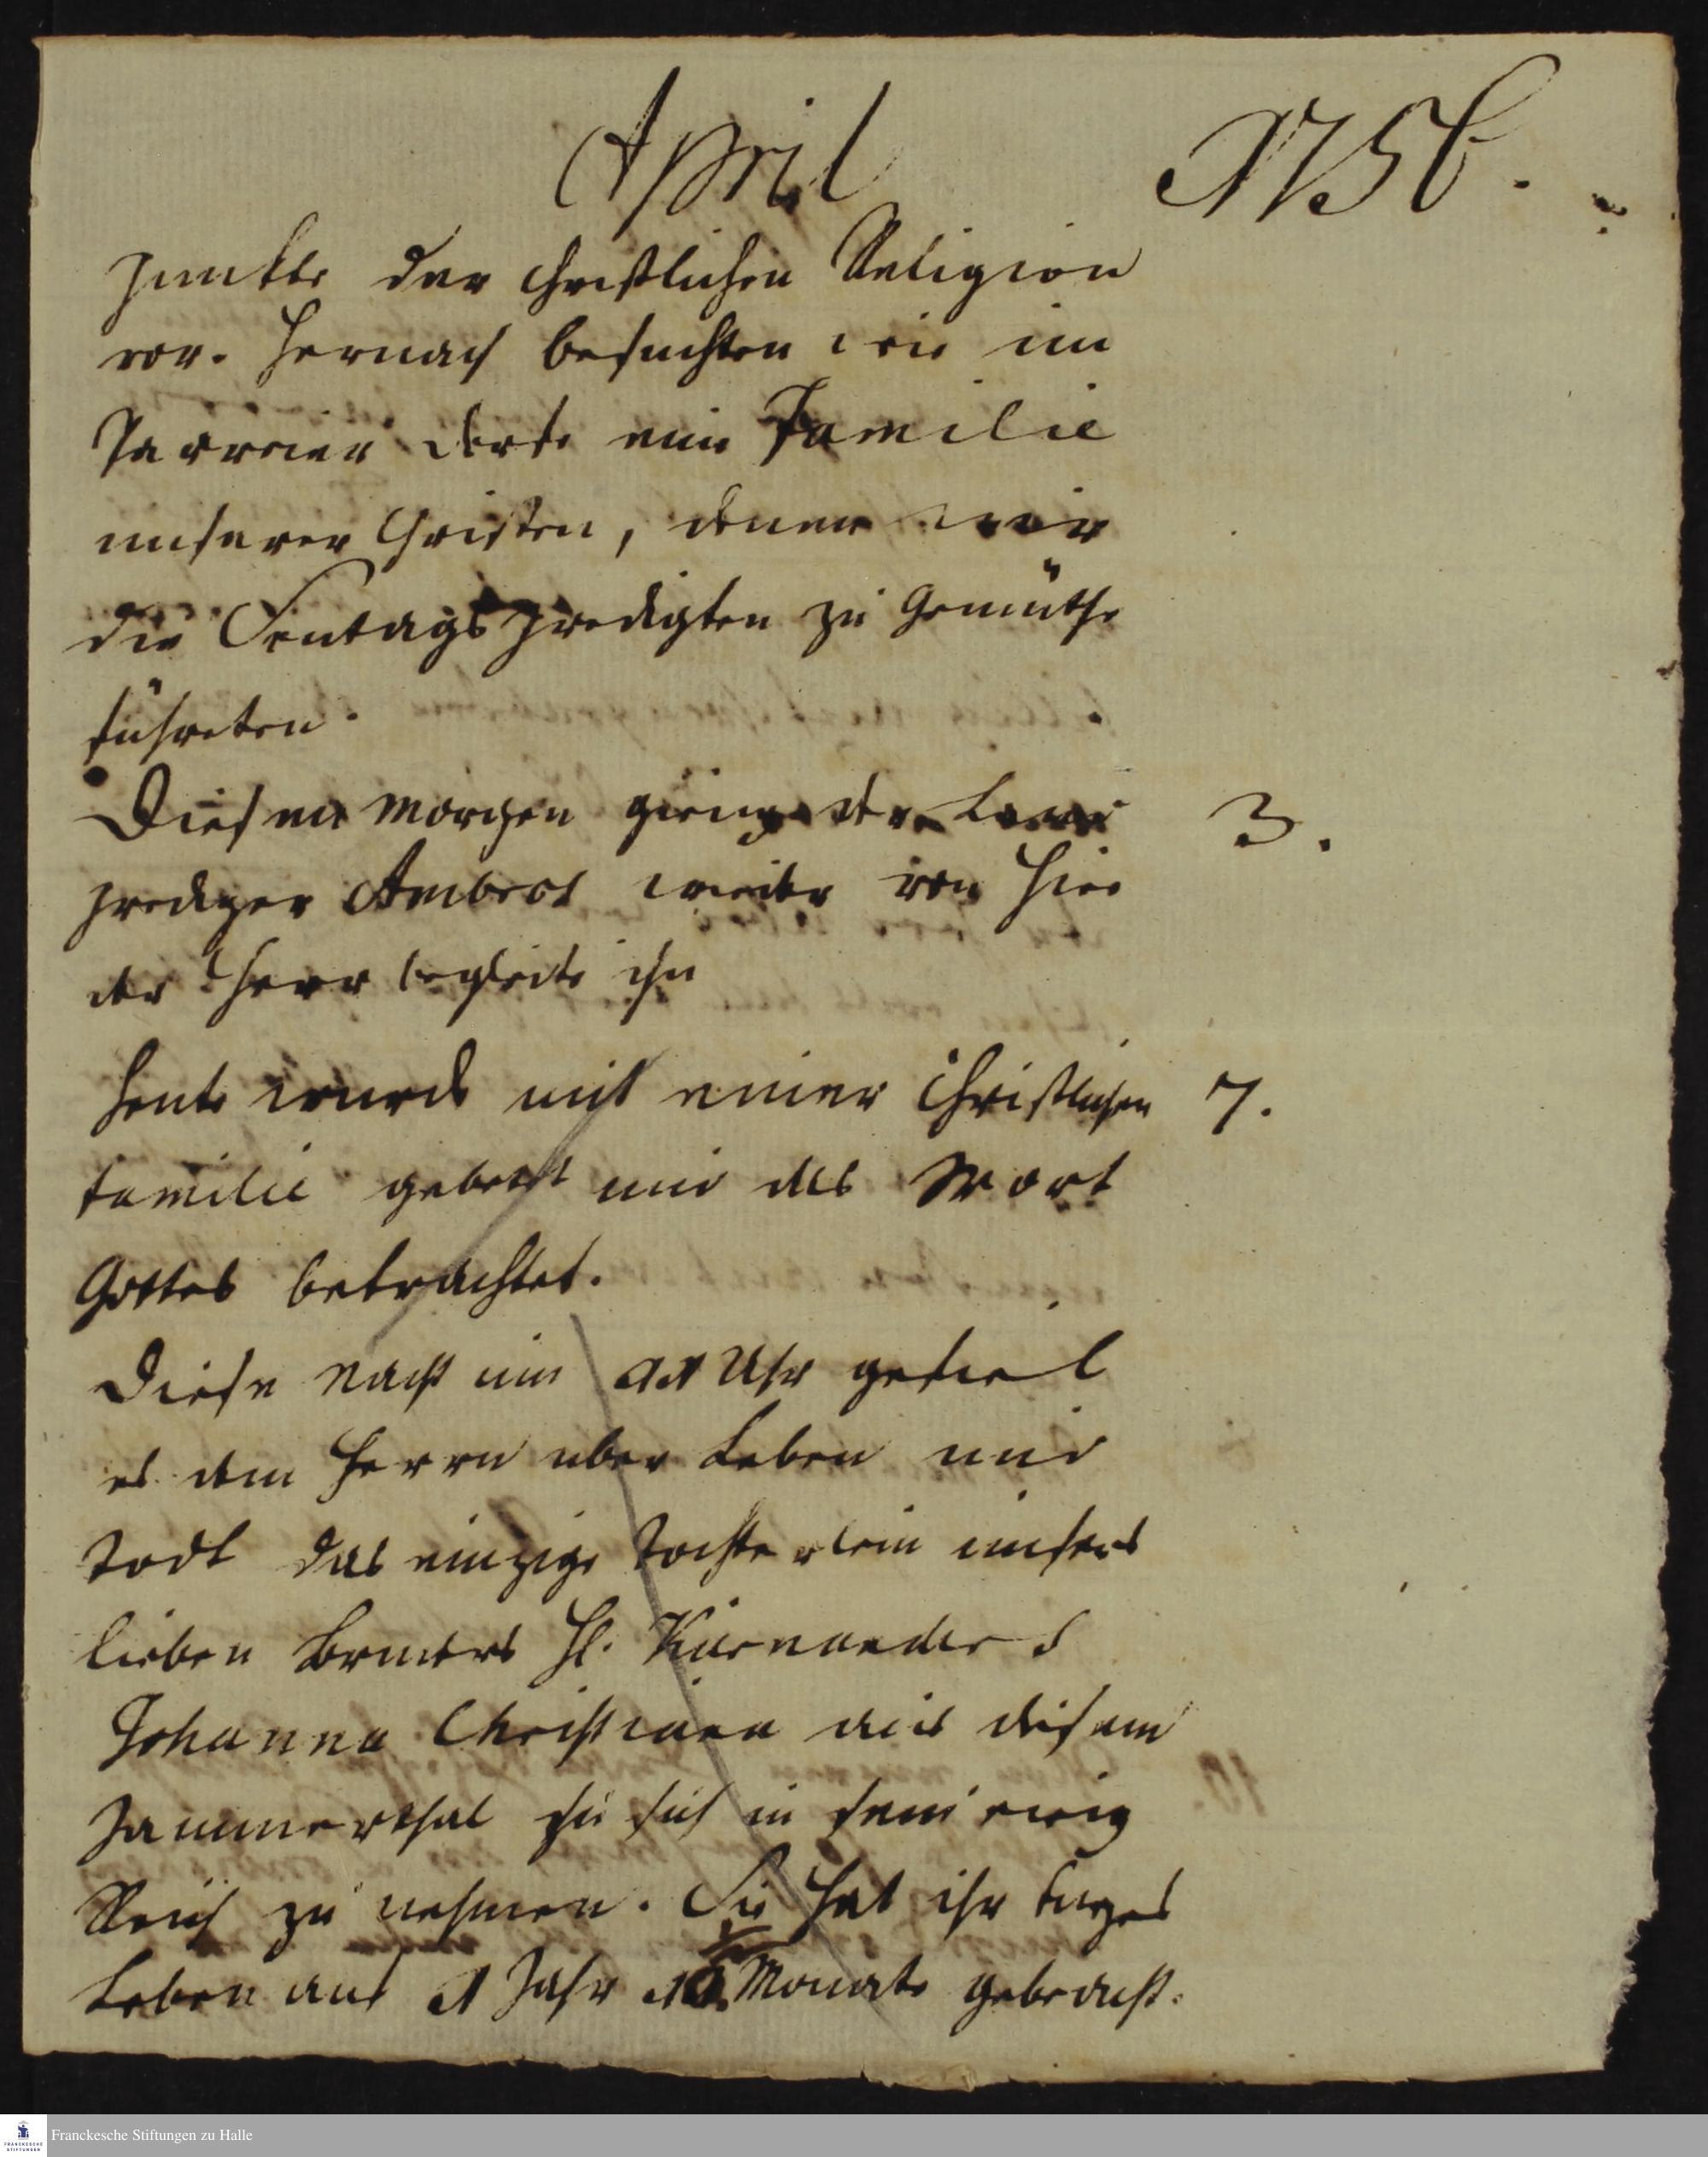 April 1756.
punkte der christlichen Religion
vor. Hernach besuchten wir im
Parreier dorfe eine Familie
unserer Christen, denen wir
die Sontags predigten zu Gemüthe
führeten.
Diesen Morgen gieng der Land 3.
prediger Ambros wieder von hier
der Herr begleite ihn
Heute wurde mit einer Christlichen 7.
familie gebetet und das Wort
Gottes betrachtet.
Diese Nacht um 11 Uhr gefiel
es dem Herrn uber Leben und
Todt das einzige Tochterlein unsers
lieben Bruders H. Kiernanders
Johanna Christiana aus diesem
Jammerthal zu sich in sein ewig
Reich zu nehmen. Sie hat ihr kurzes
Leben auf 1 Jahr Monate gebracht.
Franckesche Stiftungen zu Halle